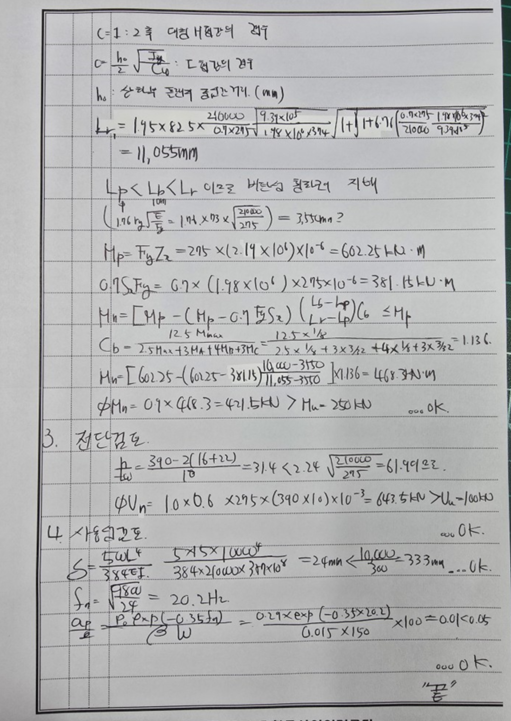 C=1 : 2축 대칭 H형강의 경우
C= h₀/2 √(Iy/Cw) : ㄷ형강의 경우
h₀ : 상하부 플랜지 중심간거리.(mm)
Lr = 1.95×82.5× 210000/(0.7×275) √(9.39×10⁵/(1.98×10⁶×374)) √(1+√(1+6.76(0.7×275/210000 · 1.98×10⁶×374/9.39×10⁵)²))
= 11,055mm
Lp < Lb < Lr 이므로 비틀림 좌굴 지배
10m
(1.76 ry √(E/Fy) = 1.76×73×√(210000/275) = 3,550mm?
Mp = FyZx = 275×(2.19×10⁶)×10⁻⁶ = 602.25kN·m
0.7SxFy = 0.7×(1.98×10⁶)×275×10⁻⁶ = 381.15kN·M
Mn = [Mp-(Mp-0.7FySx)(Lb-Lp/Lr-Lp)]Cb ≤Mp
Cb = 12.5Mmax/(2.5Max+3MA+4MB+3Mc) = 12.5×1/8/(2.5×1/8+3×3/32+4×1/8+3×3/32) = 1.136.
Mn=[602.25-(602.25-381.15) 10,000-3550/11,055-3550]×1.136=468.3kN·m
φMn = 0.9×468.3=421.5kN > Mu=250kN ...OK.
3. 전단검토.
h/tw = 390-2(16+22)/10 =31.4 < 2.24 √(210000/275) =61.9이므로.
φVn = 1.0×0.6 ×275×(390×10)×10⁻³ = 643.5kN >Vu=100kN
...OK.
4. 사용성검토.
δ= 5wL⁴/384EI. 5×5×10000⁴/384×210000×387×10⁶ =24mm< 10,000/300 =33.3mm ...OK.
fn= 18/√24 = 20.2Hz
ap/g = P₀ exp(-0.35fn)/βW = 0.29×exp(-0.35×20.2)/0.015×150 ×100 =0.01<0.05
...OK.
"끝"